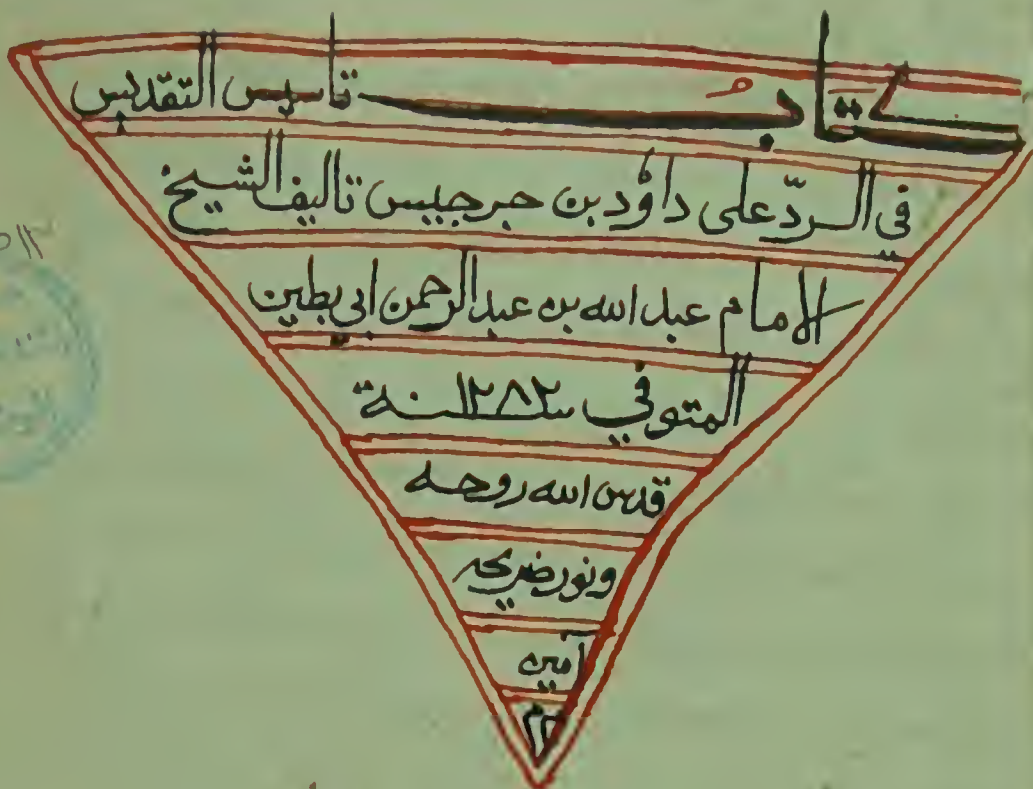 كتابُ تاسيس التقديس
في الردّ على داؤد بن جرجيس تاليف الشيخ
الامام عبد الله بن عبد الرحمن ابي بطين
المتوفي سنة ١٢٨٢
قدس الله روحه
ونور ضريحه
آمين
م م